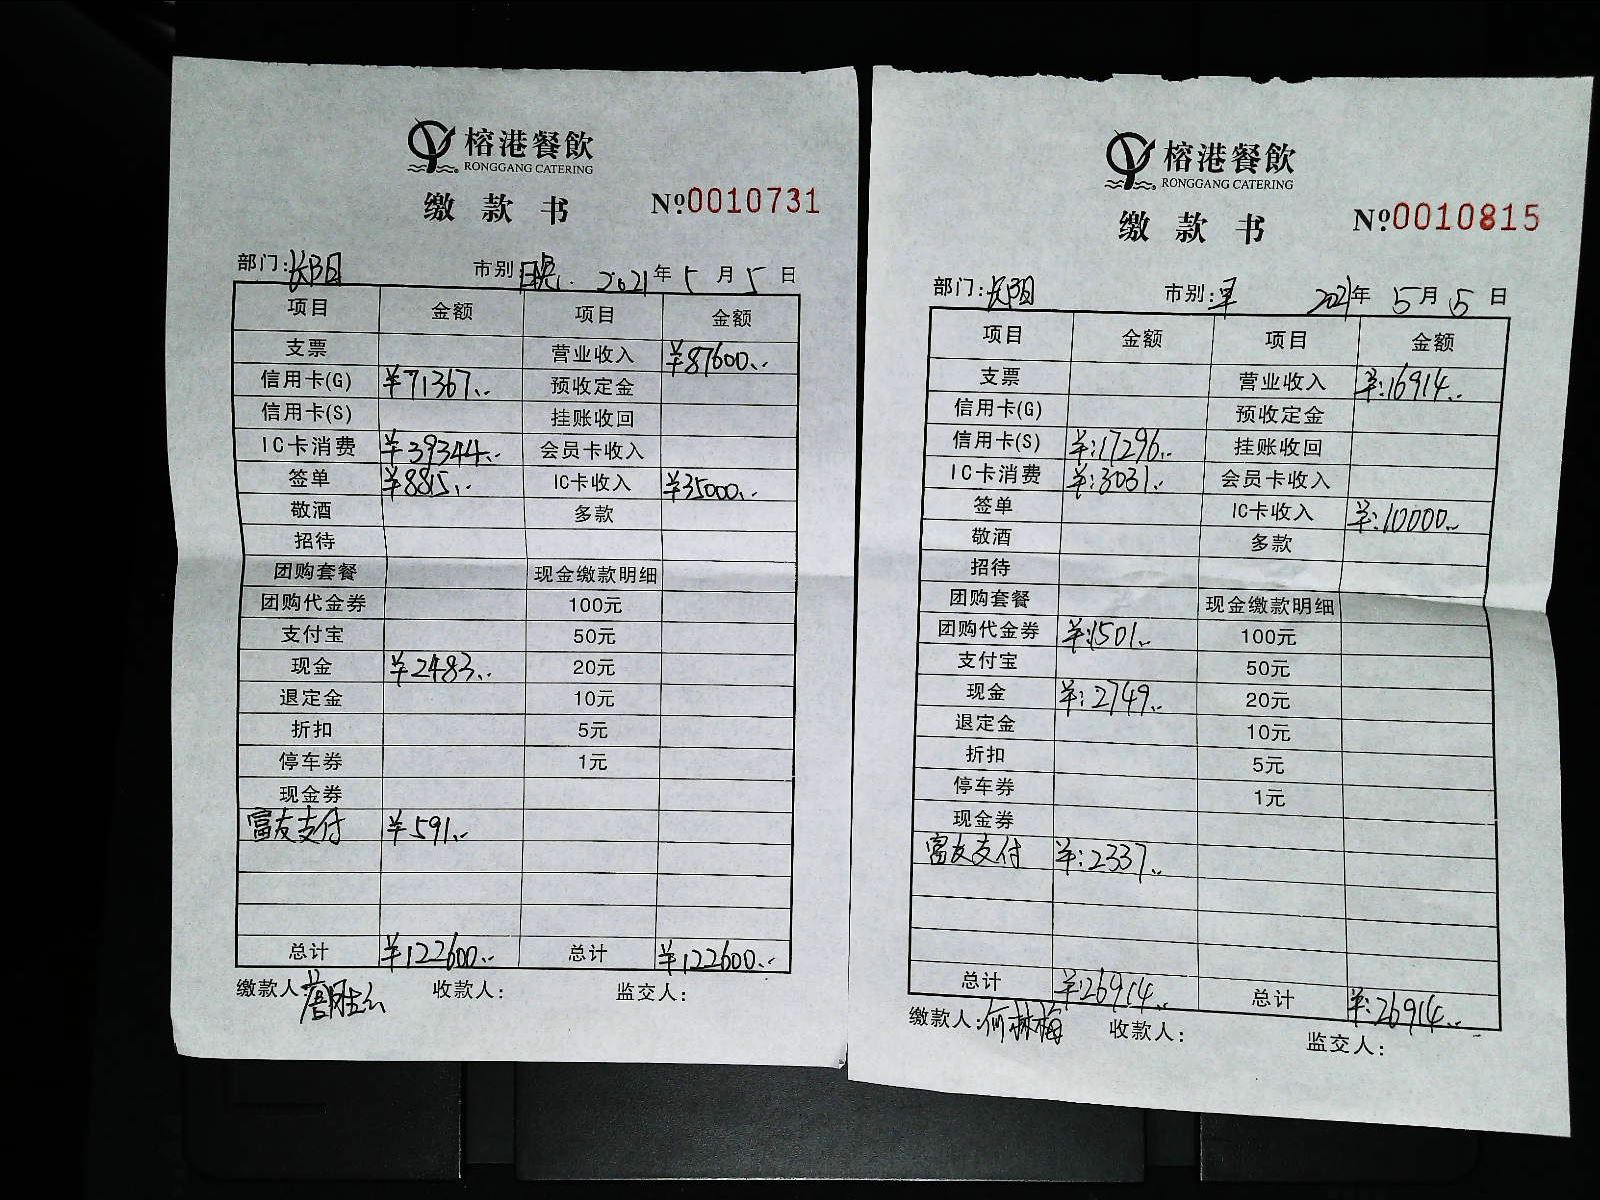 榕港餐飲
RONGGANG CATERING
缴款书 №0010731
部门: 市别: 2021年5月5日
项目 金额 项目 金额
支票 营业收入 ¥87600..
信用卡(G) ¥71367.. 预收定金
信用卡(S) 挂账收回
IC卡消费 ¥39344.. 会员卡收入
签单 ¥8815.. IC卡收入 ¥35000..
敬酒 多款
招待
团购套餐 现金缴款明细
团购代金券 100元
支付宝 50元
现金 ¥2483.. 20元
退定金 10元
折扣 5元
停车券 1元
现金券
富友支付 ¥591..
总计 ¥122600.. 总计 ¥122600..
缴款人: 收款人: 监交人:
榕港餐飲
RONGGANG CATERING
缴款书 №0010815
部门: 市别:早 2021年5月5日
项目 金额 项目 金额
支票 营业收入 ¥:16914..
信用卡(G) 预收定金
信用卡(S) ¥:17296.. 挂账收回
IC卡消费 ¥:3031.. 会员卡收入
签单 IC卡收入 ¥:10000..
敬酒 多款
招待
团购套餐 现金缴款明细
团购代金券 ¥:1501.. 100元
支付宝 50元
现金 ¥:2749.. 20元
退定金 10元
折扣 5元
停车券 1元
现金券
富友支付 ¥:2337..
总计 ¥:26914.. 总计 ¥:26914..
缴款人:何林梅 收款人: 监交人: